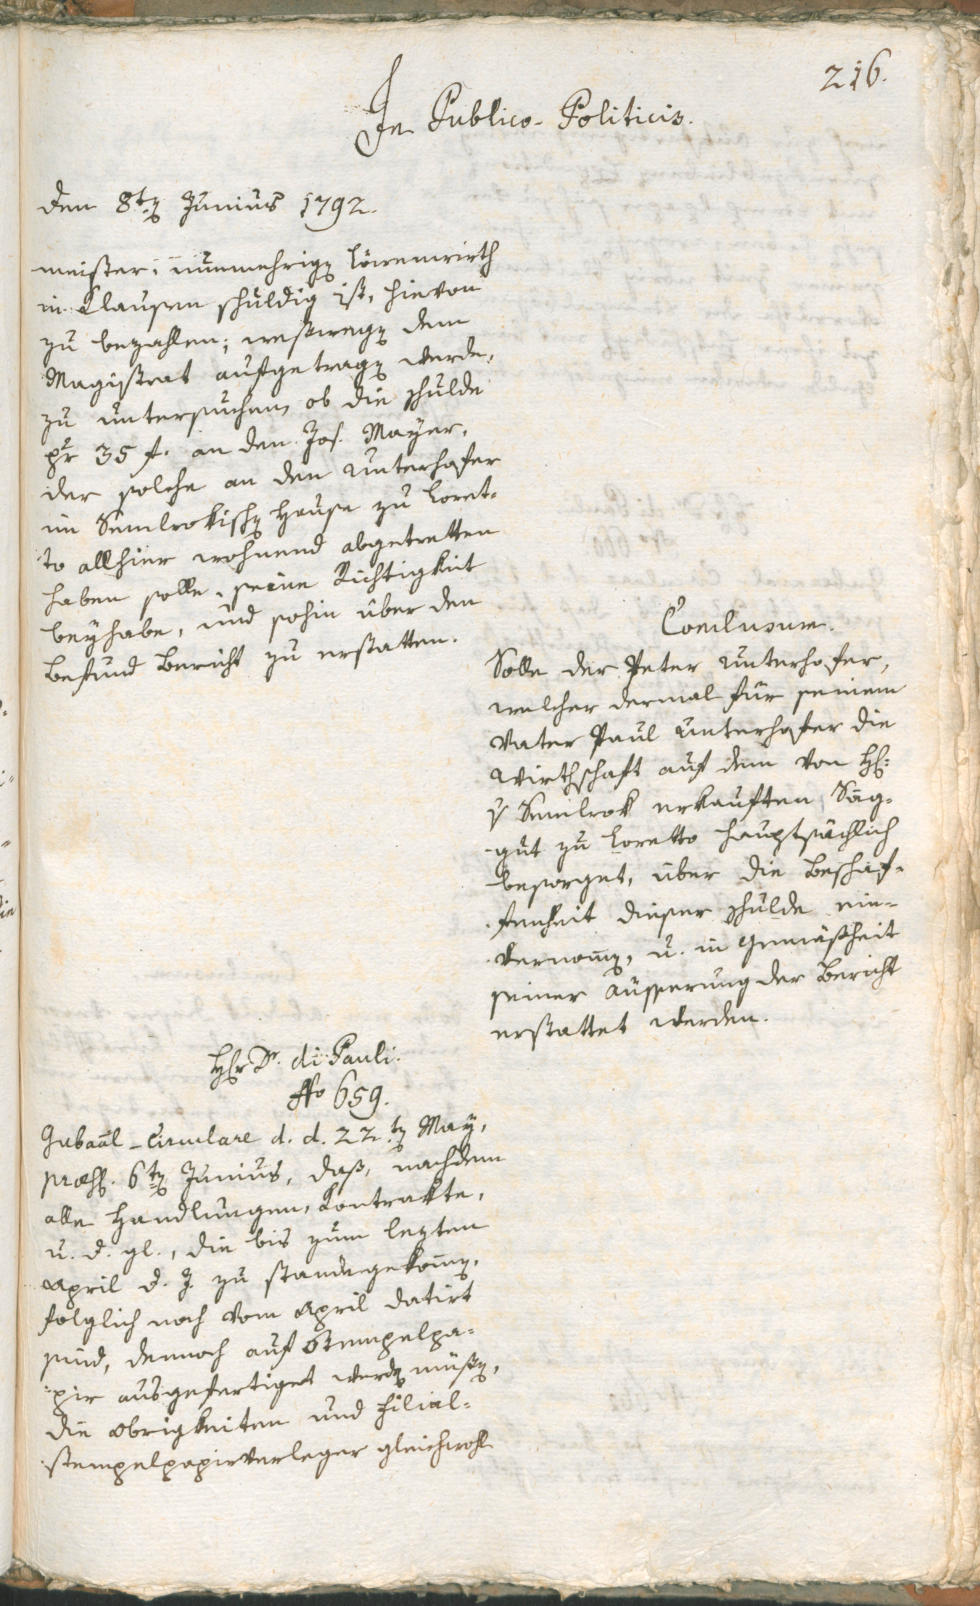 216.
In Publico-Politicis.
den 8t: Junius 1792.
meister, nunmehrig Löwenwirth
in Clausen schuldig ist, hievon
zu bezahlen; weßweg dem
Magistrat aufgetrag werde,
zu untersuchen, ob die Schulde
pr 35 f. an den Jos. Mayer,
der solche an den Unterhofer
im Semlrokisch Hause zu Loret-
to allhier wohnend abgetretten
haben solle, seine Richtigkeit
beyhabe, und sohin über den
Befund Bericht zu erstatten.
Conclusum.
Solle der Peter Unterhofer,
welcher dermal für seinem
Vater Paul Unterhofer die
Wirthschaft auf dem von H:
v Semlrok erkauften Säg-
gut zu Loretto hauptsächlich
besorget, über die Beschaf-
fenheit dieser Schulde ein-
vernom̄, u. in Gemäßheit
seiner Äusserung der Bericht
erstattet werden.
Hr Dr. di Pauli.
No 659.
Gubaāl-Circulare d. d. 22t May,
præs. 6t Junius, daß, nachdem
alle Handlungen, Kontrakte,
u. d. gl., die bis zum lezten
April d. J. zu stande gekom̄,
folglich noch vom April datirt
sind, dennoch auf Stempelpa-
pir ausgefertiget werd müß,
die Obrigkeiten und Filial-
stempelpapirverleger gleichwohl